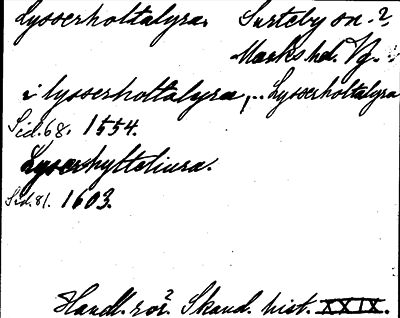 Lysserholtalyra. Surteby sn.?
Marks hd. Vg.
i lysserholtalyra, .. Lysserholtalyra
Sid. 68. 1554.
Lyserhylteliura.
Sid. 81. 1603.
Handl. rör? Skand. hist. XXIX.